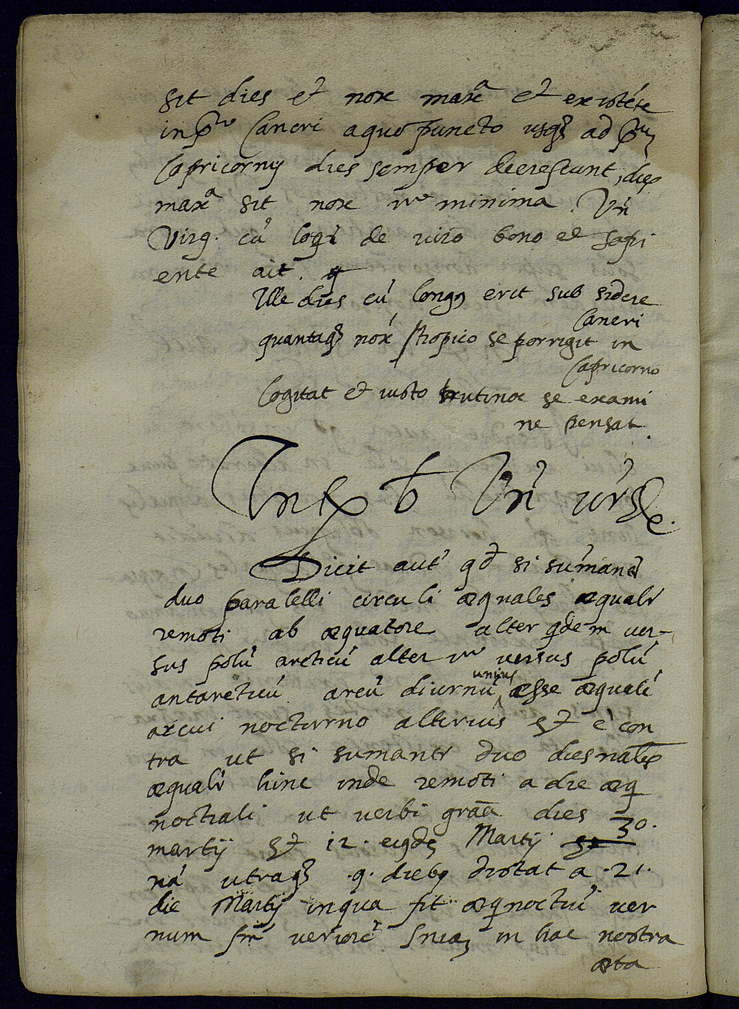 sit dies et nox maxᵃ et existēte
in pᵗᵒ Cancri a quo puncto usqʒ ad pᵗᵘ̄
Capricornij dies semper decrescunt, dies
maxᵃ sit nox vᵒ minima. Vn̄
Virg. cū loqr̄ de viro bono et sapi
ente ait.
Ille dies cū longꝰ erit sub sidere
Cancri
quantaqʒ nox tropico se porrigit in
Capricorno
Cogitat et iusto trutinae se exami
ne pensat.
Vn̄ vers
Dicit aut̄ qd̄ si sumanr̄
duo paralelli circuli æquales æqualr̄
remoti ab æquatore alter qdem ver-
sus polū arcticū alter vᵒ versus polū
antarcticū arcū diurnū unius esse æqualē
arcui nocturno alterius et è con
tra ut si sumantr̄ duo dies nales
æqualr̄ hinc inde remoti a die æq
noctiali ut verbi grāa dies 30.
martij et 12. eiqdē Martij
nā utraqʒ 9. diebꝰ distat a .21.
die Martij in qua fit æqnoctiū ver
num verior in hac nostra
æta